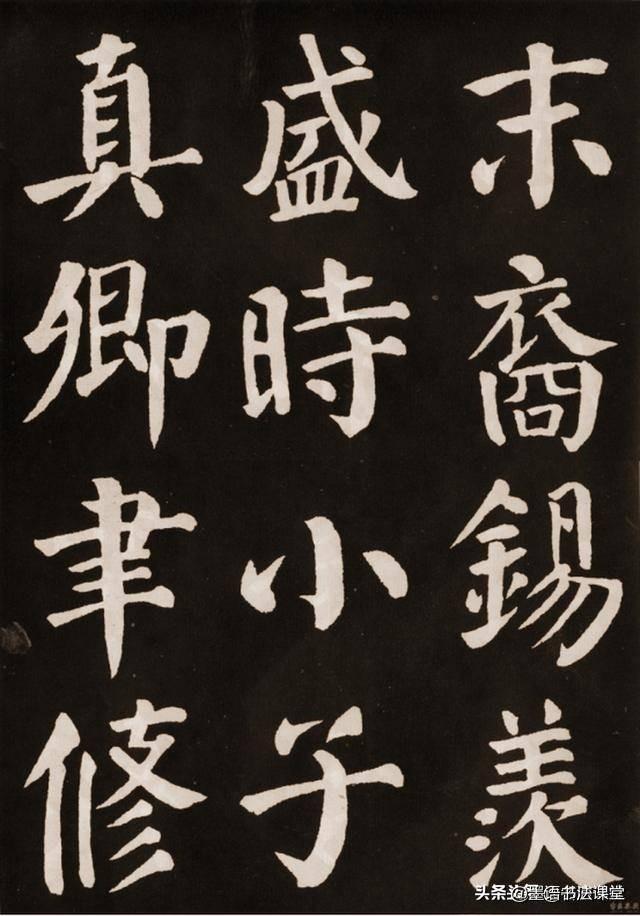 末裔錫羨
盛時小子
真卿聿修
头条@墨语书法课堂